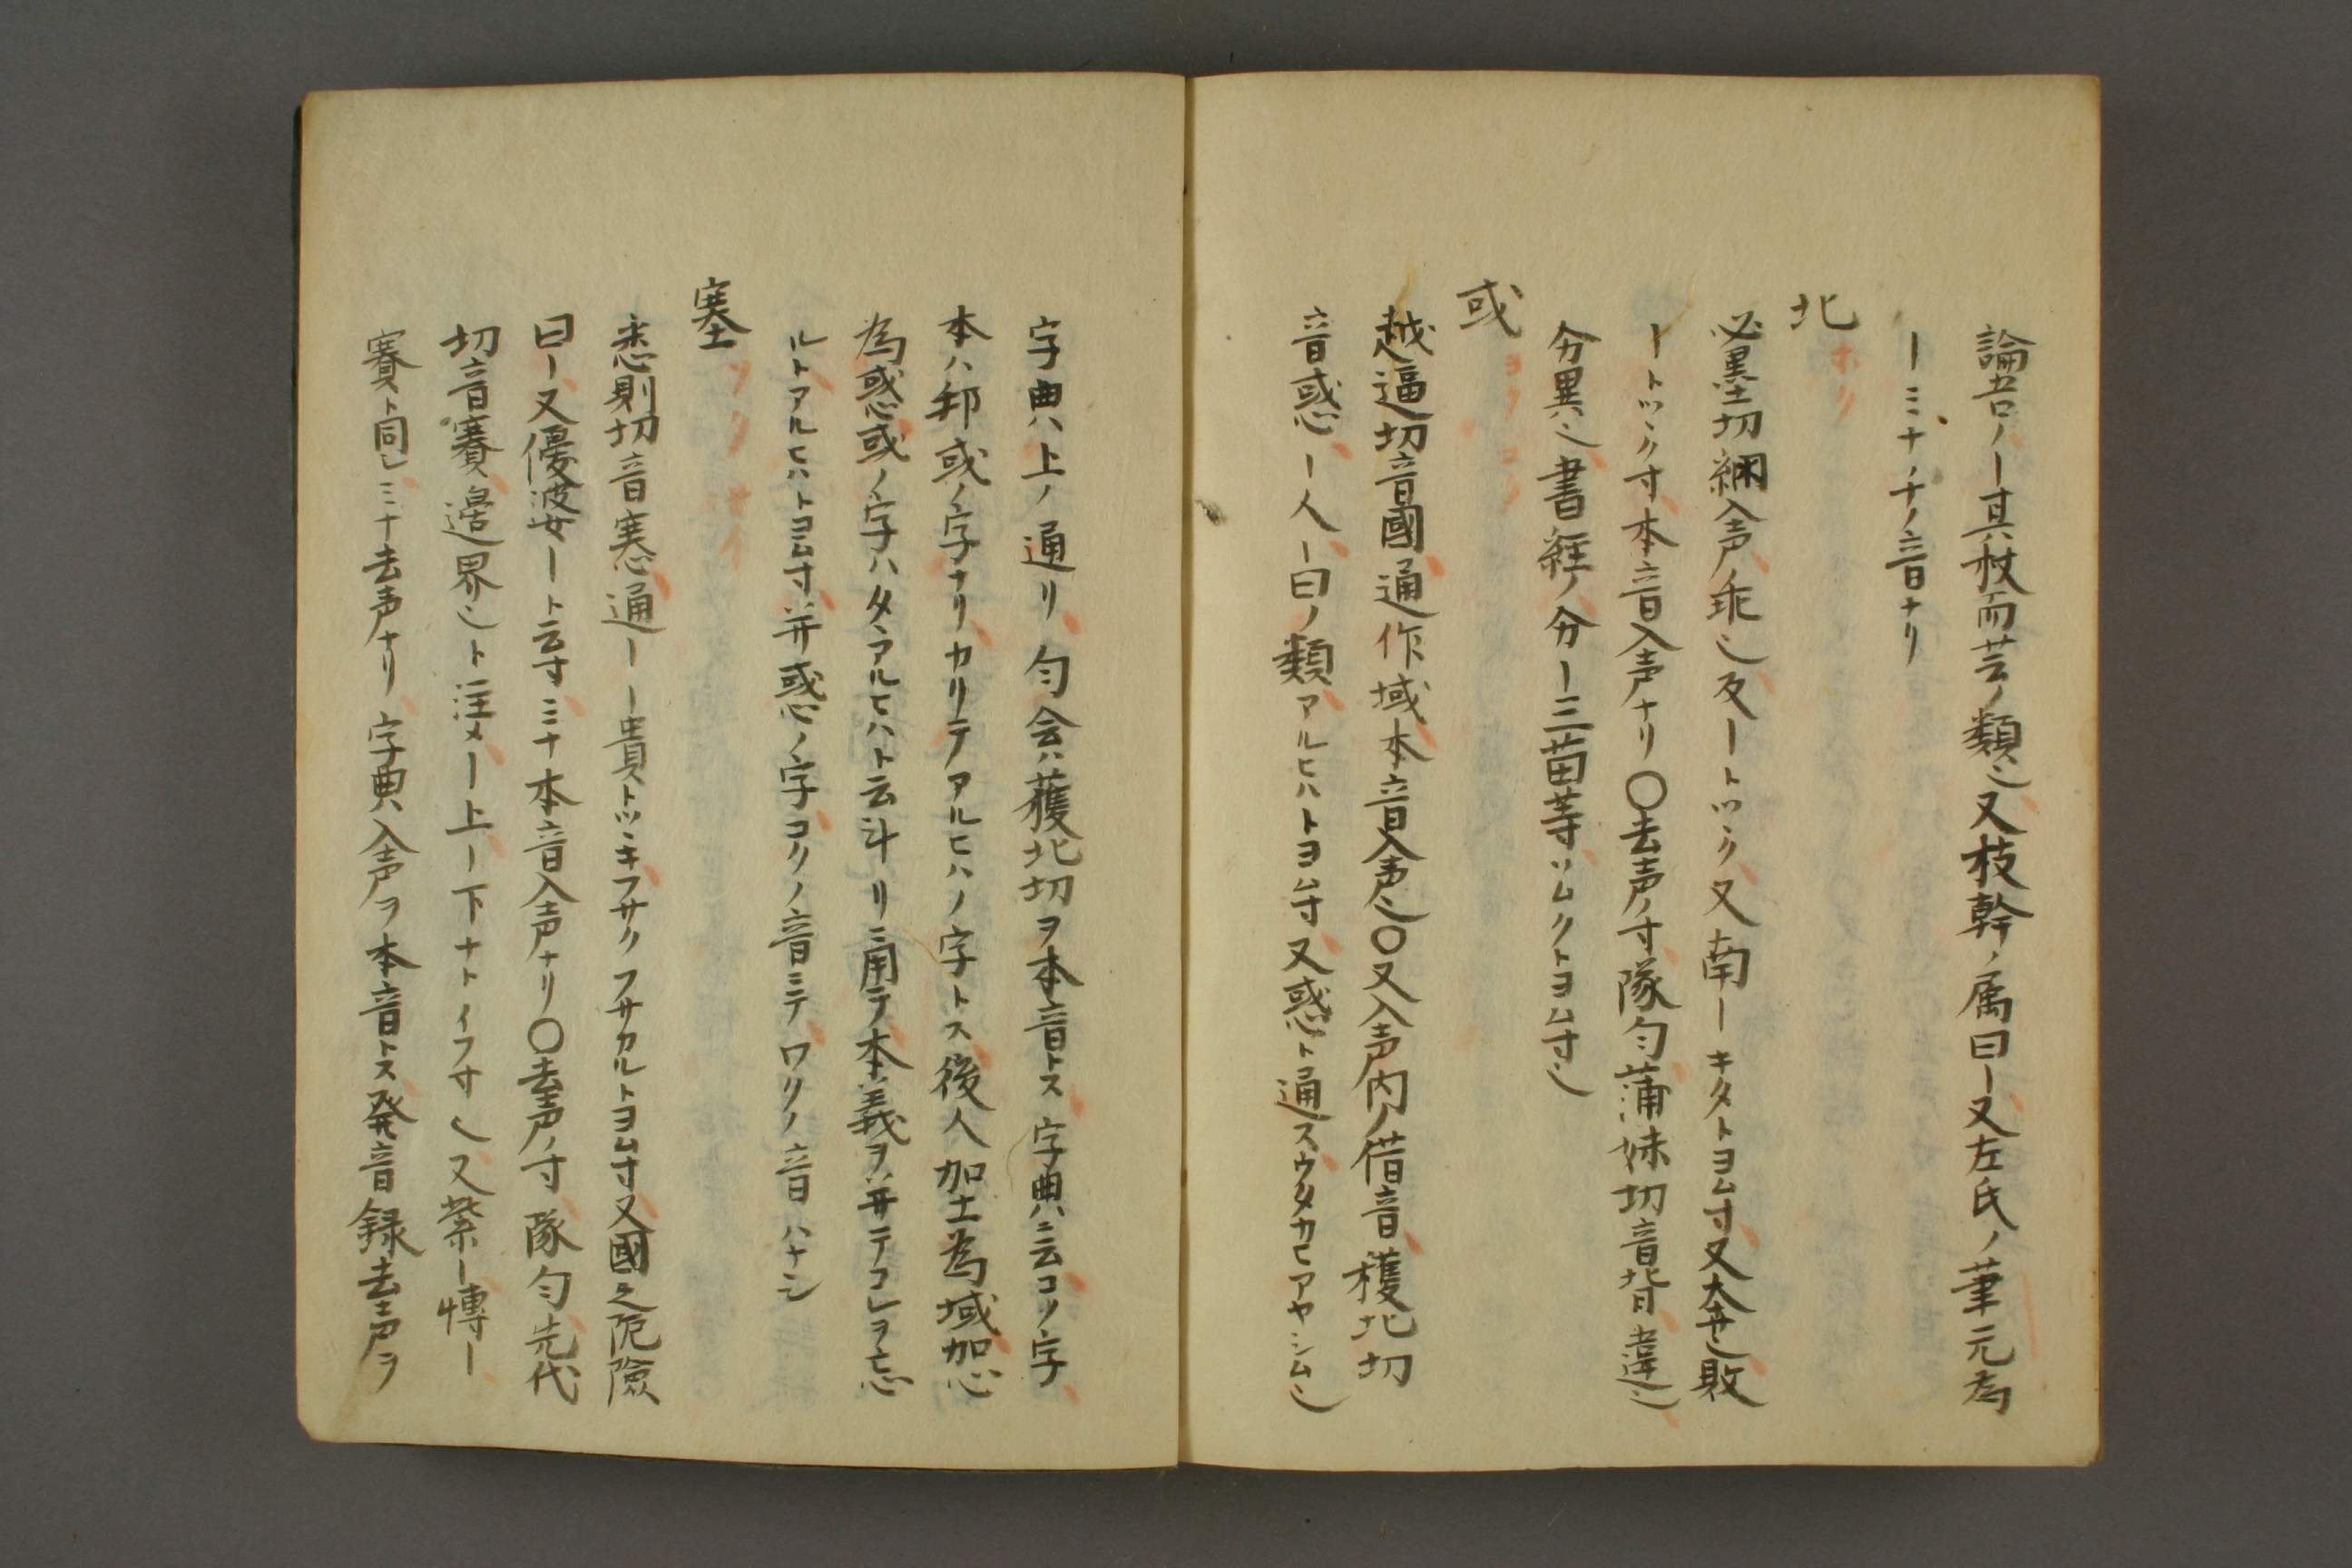 論吾ノ一其杖而芸ノ類也又枝幹ノ属曰一又左氏ノ筆元為
一ミナチノ音ナリ
北 ホク
必墨切綱入声ノ乖也反一トツヽク又南一キタトヨム寸又大奔也敗
一トツヽク寸本音入声ナリ〇去声ノ寸隊匀蒲妹切音背違也
分異也書経ノ分一三苗等ソムクトヨム寸也
或 ヨク コク
越逼切音國通作域本音入声也〇又入声内ノ借音穫北切
音惑一人一曰ノ類アルヒハトヨム寸又惑ト通スウタカヒアヤシム也
字典ハ上ノ通リ匀会ハ獲北切ヲ本音トス字典ニ云コノ字
本ハ邦或ノ字ナリカリテアルヒハノ字トス後人加土為域加心
為惑或ノ字ハタヽアルヒハト云斗リニ用テ本義ヲ并テコレヲ忘
ルトアルヒハトヨム寸并惑ノ字コクノ音ニテワクノ音ハナシ
塞 ソク サイ
悉則切音寒心通一一責トツヽキフサクフサカルトヨム寸又國之阨險
曰一又優波一ト云寸ミナ本音入声ナリ〇去声ノ寸隊匀先代
切音賽邊界也ト注メ一上一下ナトイフ寸也又紫一愽一
賽ト同シミナ去声ナリ字典ハ入声ヲ本音トス発音録去声ヲ